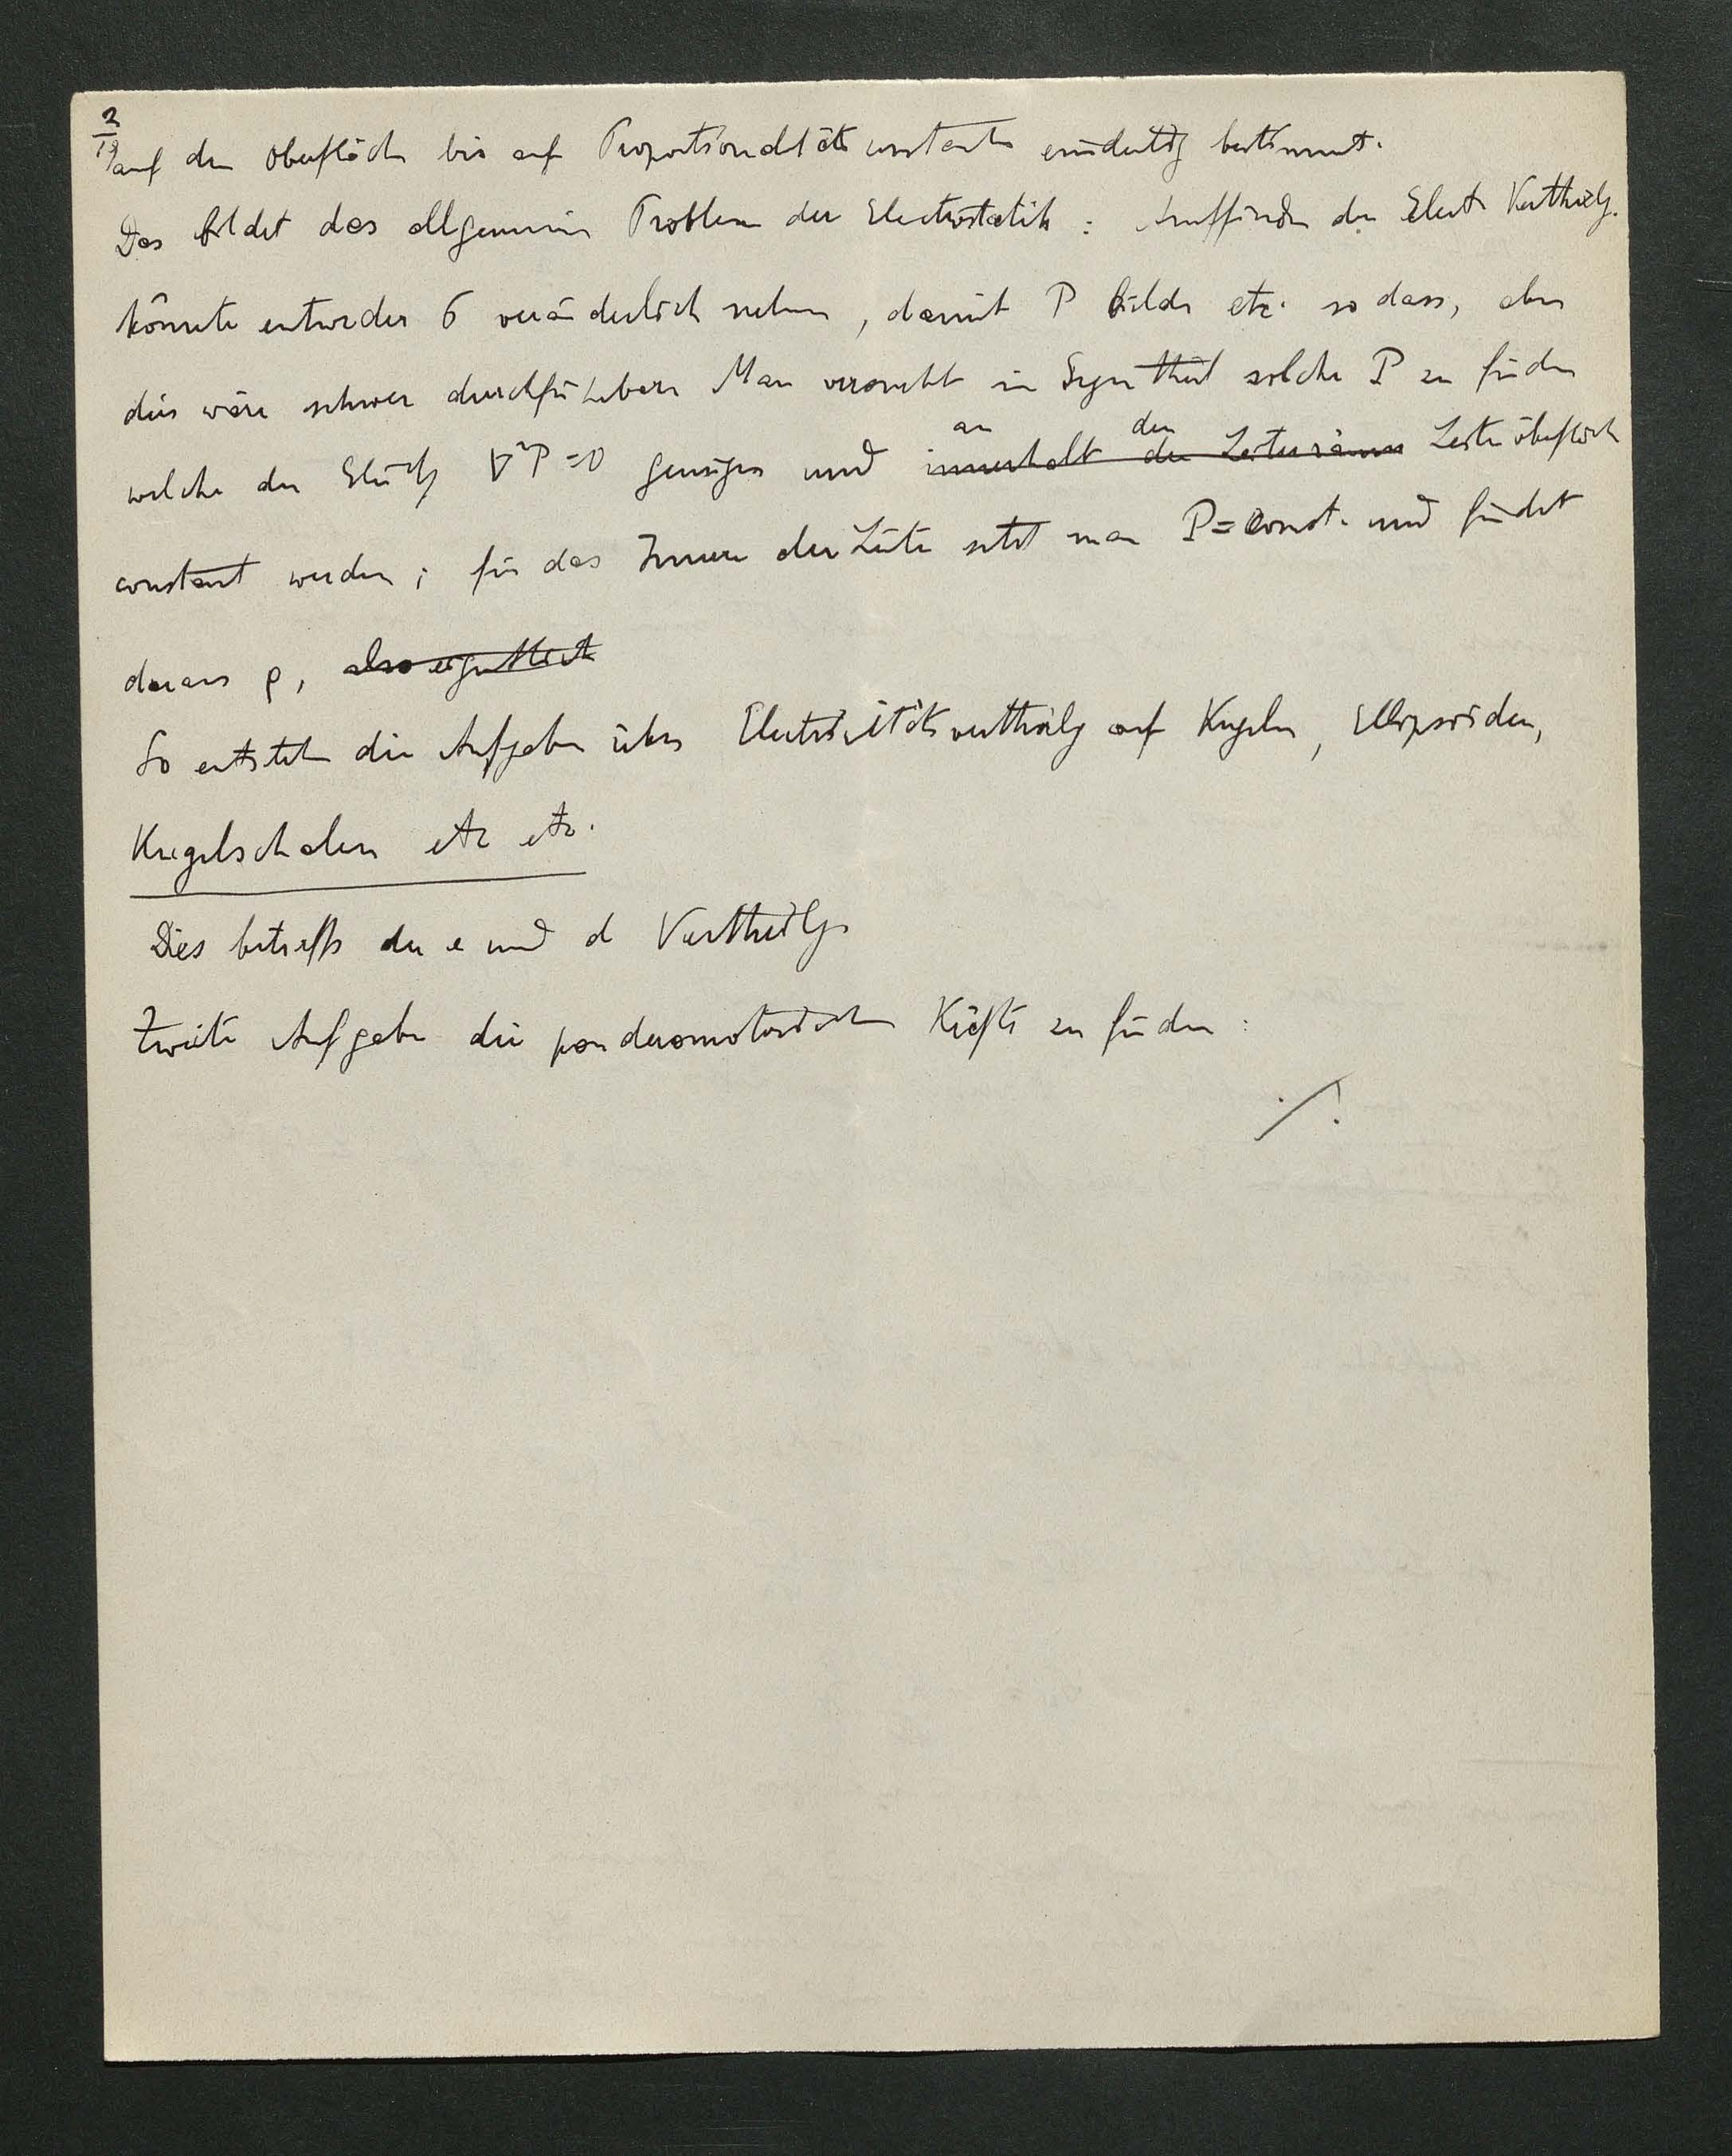 2
auf der Oberfläche bis auf Proportionalitätsconstante eindeutig bestimmt.
Das bildet das allgemeine Problem der Electrostatik: Auffinden der Electr Vertheilg.
könnte entweder σ veränderlich nehmen, damit P bilden etc. so dass, aber
dies wäre schwer durchführbar. Man versucht im solche P zu finden
an den
welche der Gleichg ∇²P=0 genügen und innerhalb der Leiterräume Leiteroberfläch
constant werden; für das Innere der Leiter setzt man P=const. und findet
daraus ρ, also
So entstehen die Aufgaben über Electricitätsvertheilg auf Kugeln, Ellipsoiden,
Kugelschalen etc etc.
Dies betreffs der e und d Vertheilg.
Zweite Aufgabe die ponderomotorischen Kräfte zu finden:
./.